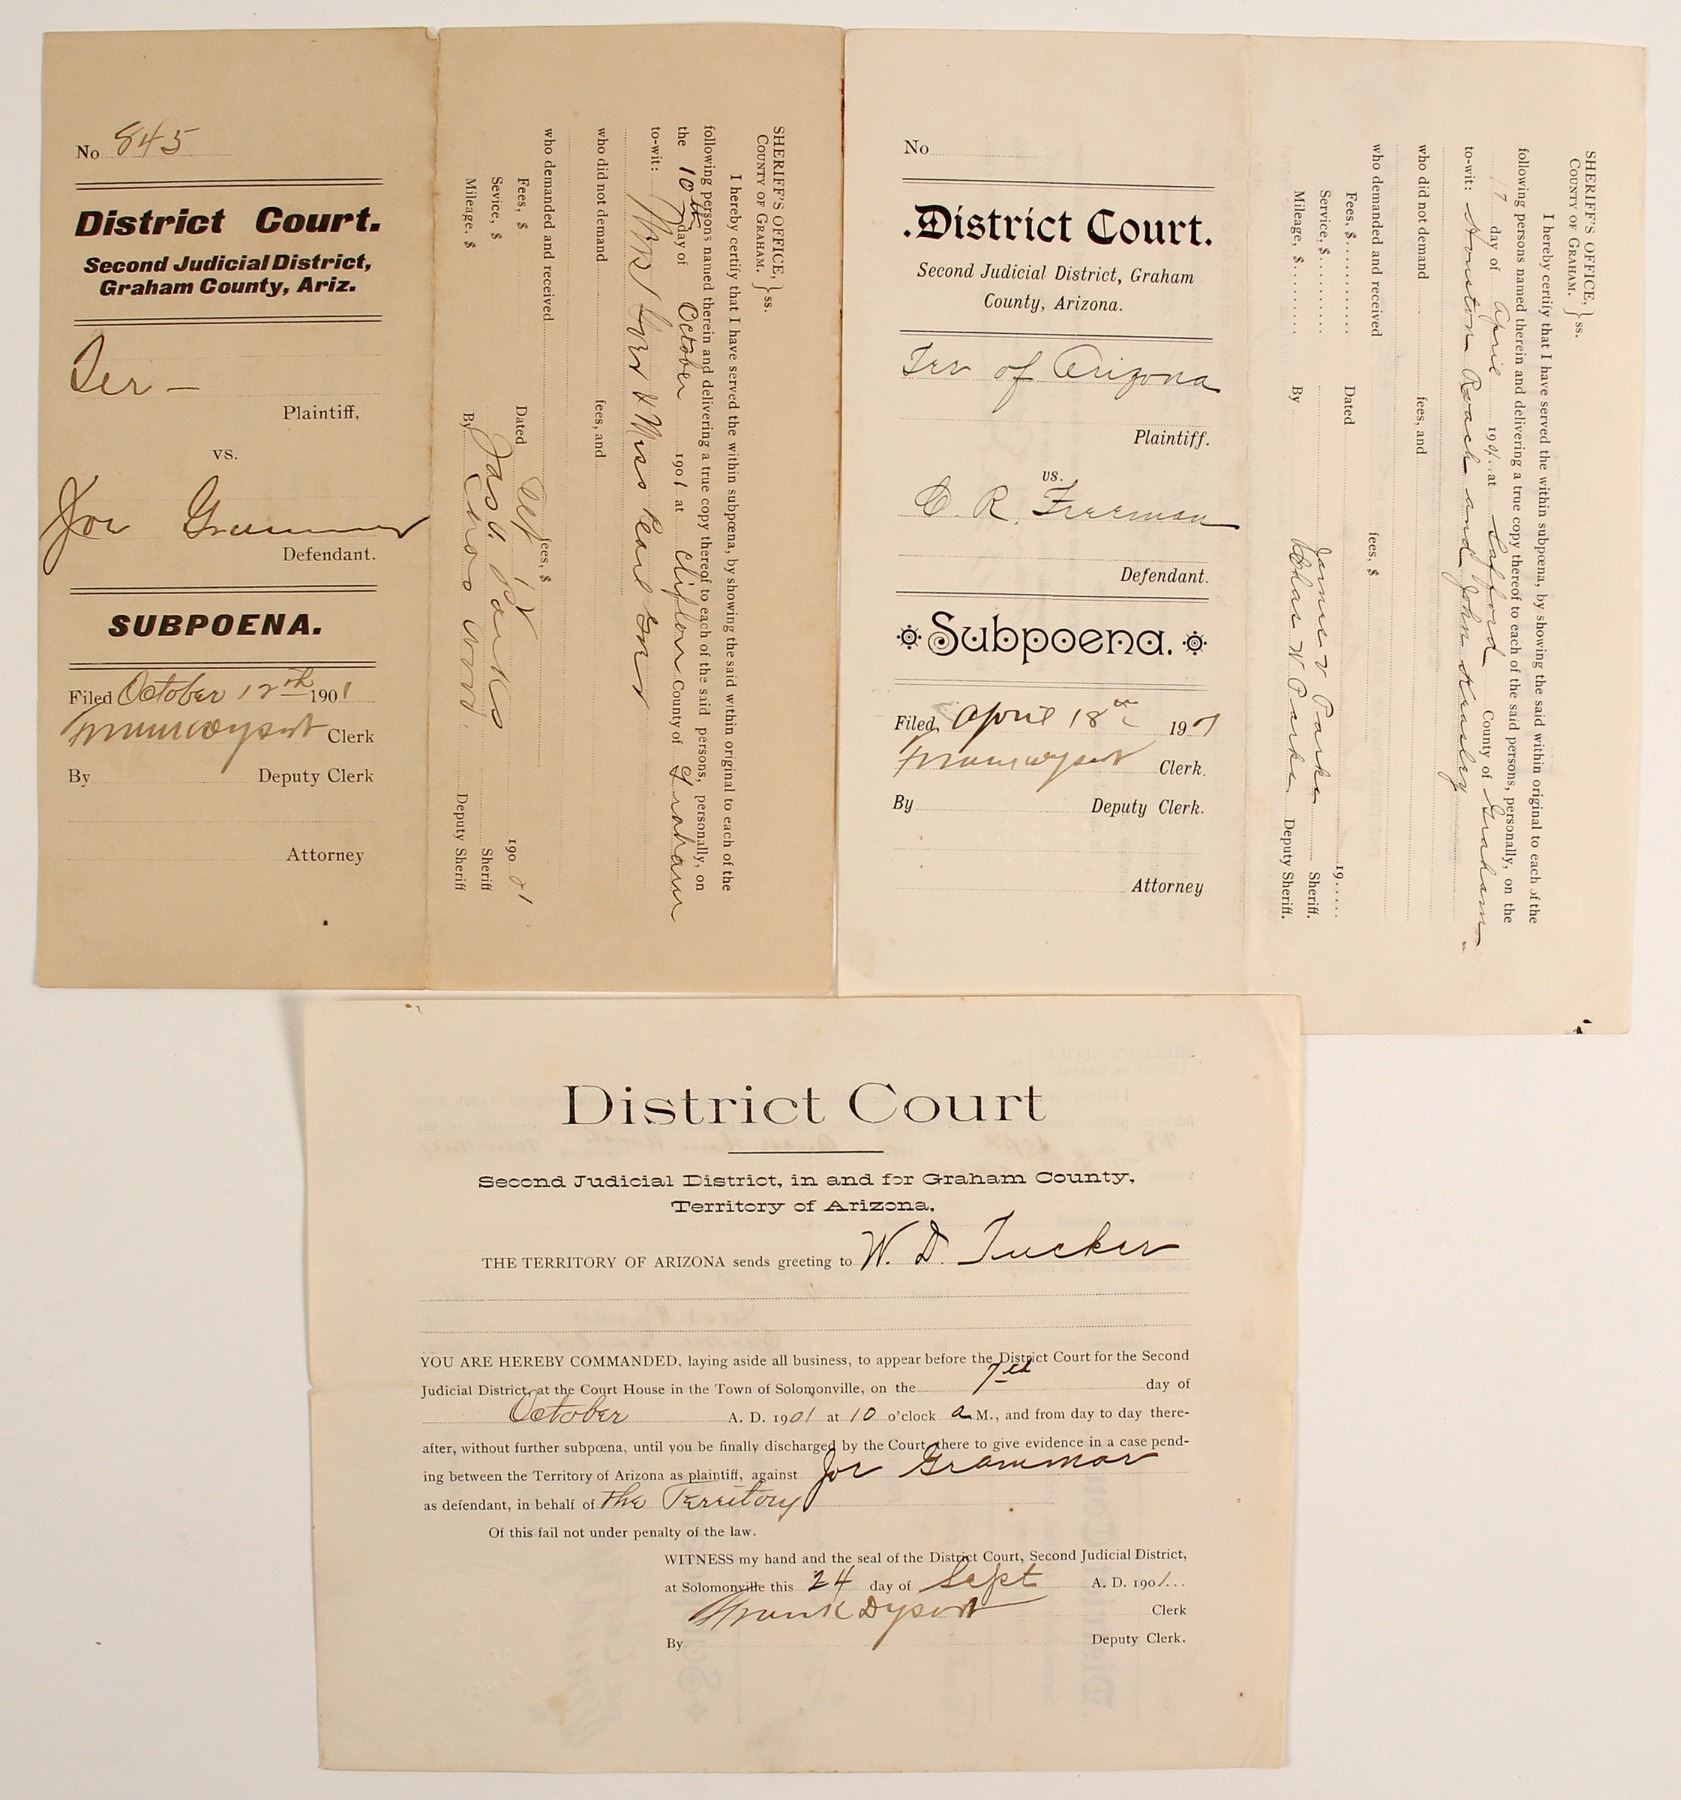 No 845
District Court.
Second Judicial District,
Graham County, Ariz.
Ter —
Plaintiff,
vs.
Joe Grammer
Defendant.
SUBPOENA.
Filed October 12th 1901
Clerk
By Deputy Clerk
Attorney
SHERIFF'S OFFICE, } ss.
COUNTY OF GRAHAM.
I hereby certify that I have served the within subpœna, by showing the said within original to each of the
following persons named therein and delivering a true copy thereof to each of the said persons, personally, on
the 10th day of October 1901 at Clifton County of Graham
to-wit: & Miss Pearl
who did not demand fees, and
who demanded and received fees, $
Fees, $ Dated 190 01
Sevice, $ Jas V. Parks Sheriff
Mileage. $ By Deputy Sheriff
No
District Court.
Second Judicial District, Graham
County, Arizona.
Ter of Arizona
Plaintiff.
vs.
C. R. Freeman
Defendant.
Subpoena.
Filed, April 18th 1901
Clerk.
By Deputy Clerk.
Attorney
SHERIFF'S OFFICE, } ss.
COUNTY OF GRAHAM.
I hereby certify that I have served the within subpœna, by showing the said within original to each of the
following persons named therein and delivering a true copy thereof to each of the said persons, personally, on the
17 day of April 1901 at Safford County of Graham
to-wit: Houston Roach and John
who did not demand fees, and
who demanded and received fees, $
Fees, $ Dated 19
Service, $ James V Parks Sheriff.
Mileage, $ By Chas W Parks Deputy Sheriff.
District Court
Second Judicial District, in and for Graham County,
Territory of Arizona,
THE TERRITORY OF ARIZONA sends greeting to W. D. Tucker
YOU ARE HEREBY COMMANDED, laying aside all business, to appear before the District Court for the Second
Judicial District, at the Court House in the Town of Solomonville, on the 7th day of
October A. D. 1901 at 10 o'clock a M., and from day to day there-
after, without further subpœna, until you be finally discharged by the Court, there to give evidence in a case pend-
ing between the Territory of Arizona as plaintiff, against Joe Grammar
as defendant, in behalf of the Territory
Of this fail not under penalty of the law.
WITNESS my hand and the seal of the District Court, Second Judicial District,
at Solomonville this 24 day of Sept A. D. 1901
Frank Dysart Clerk
By Deputy Clerk.